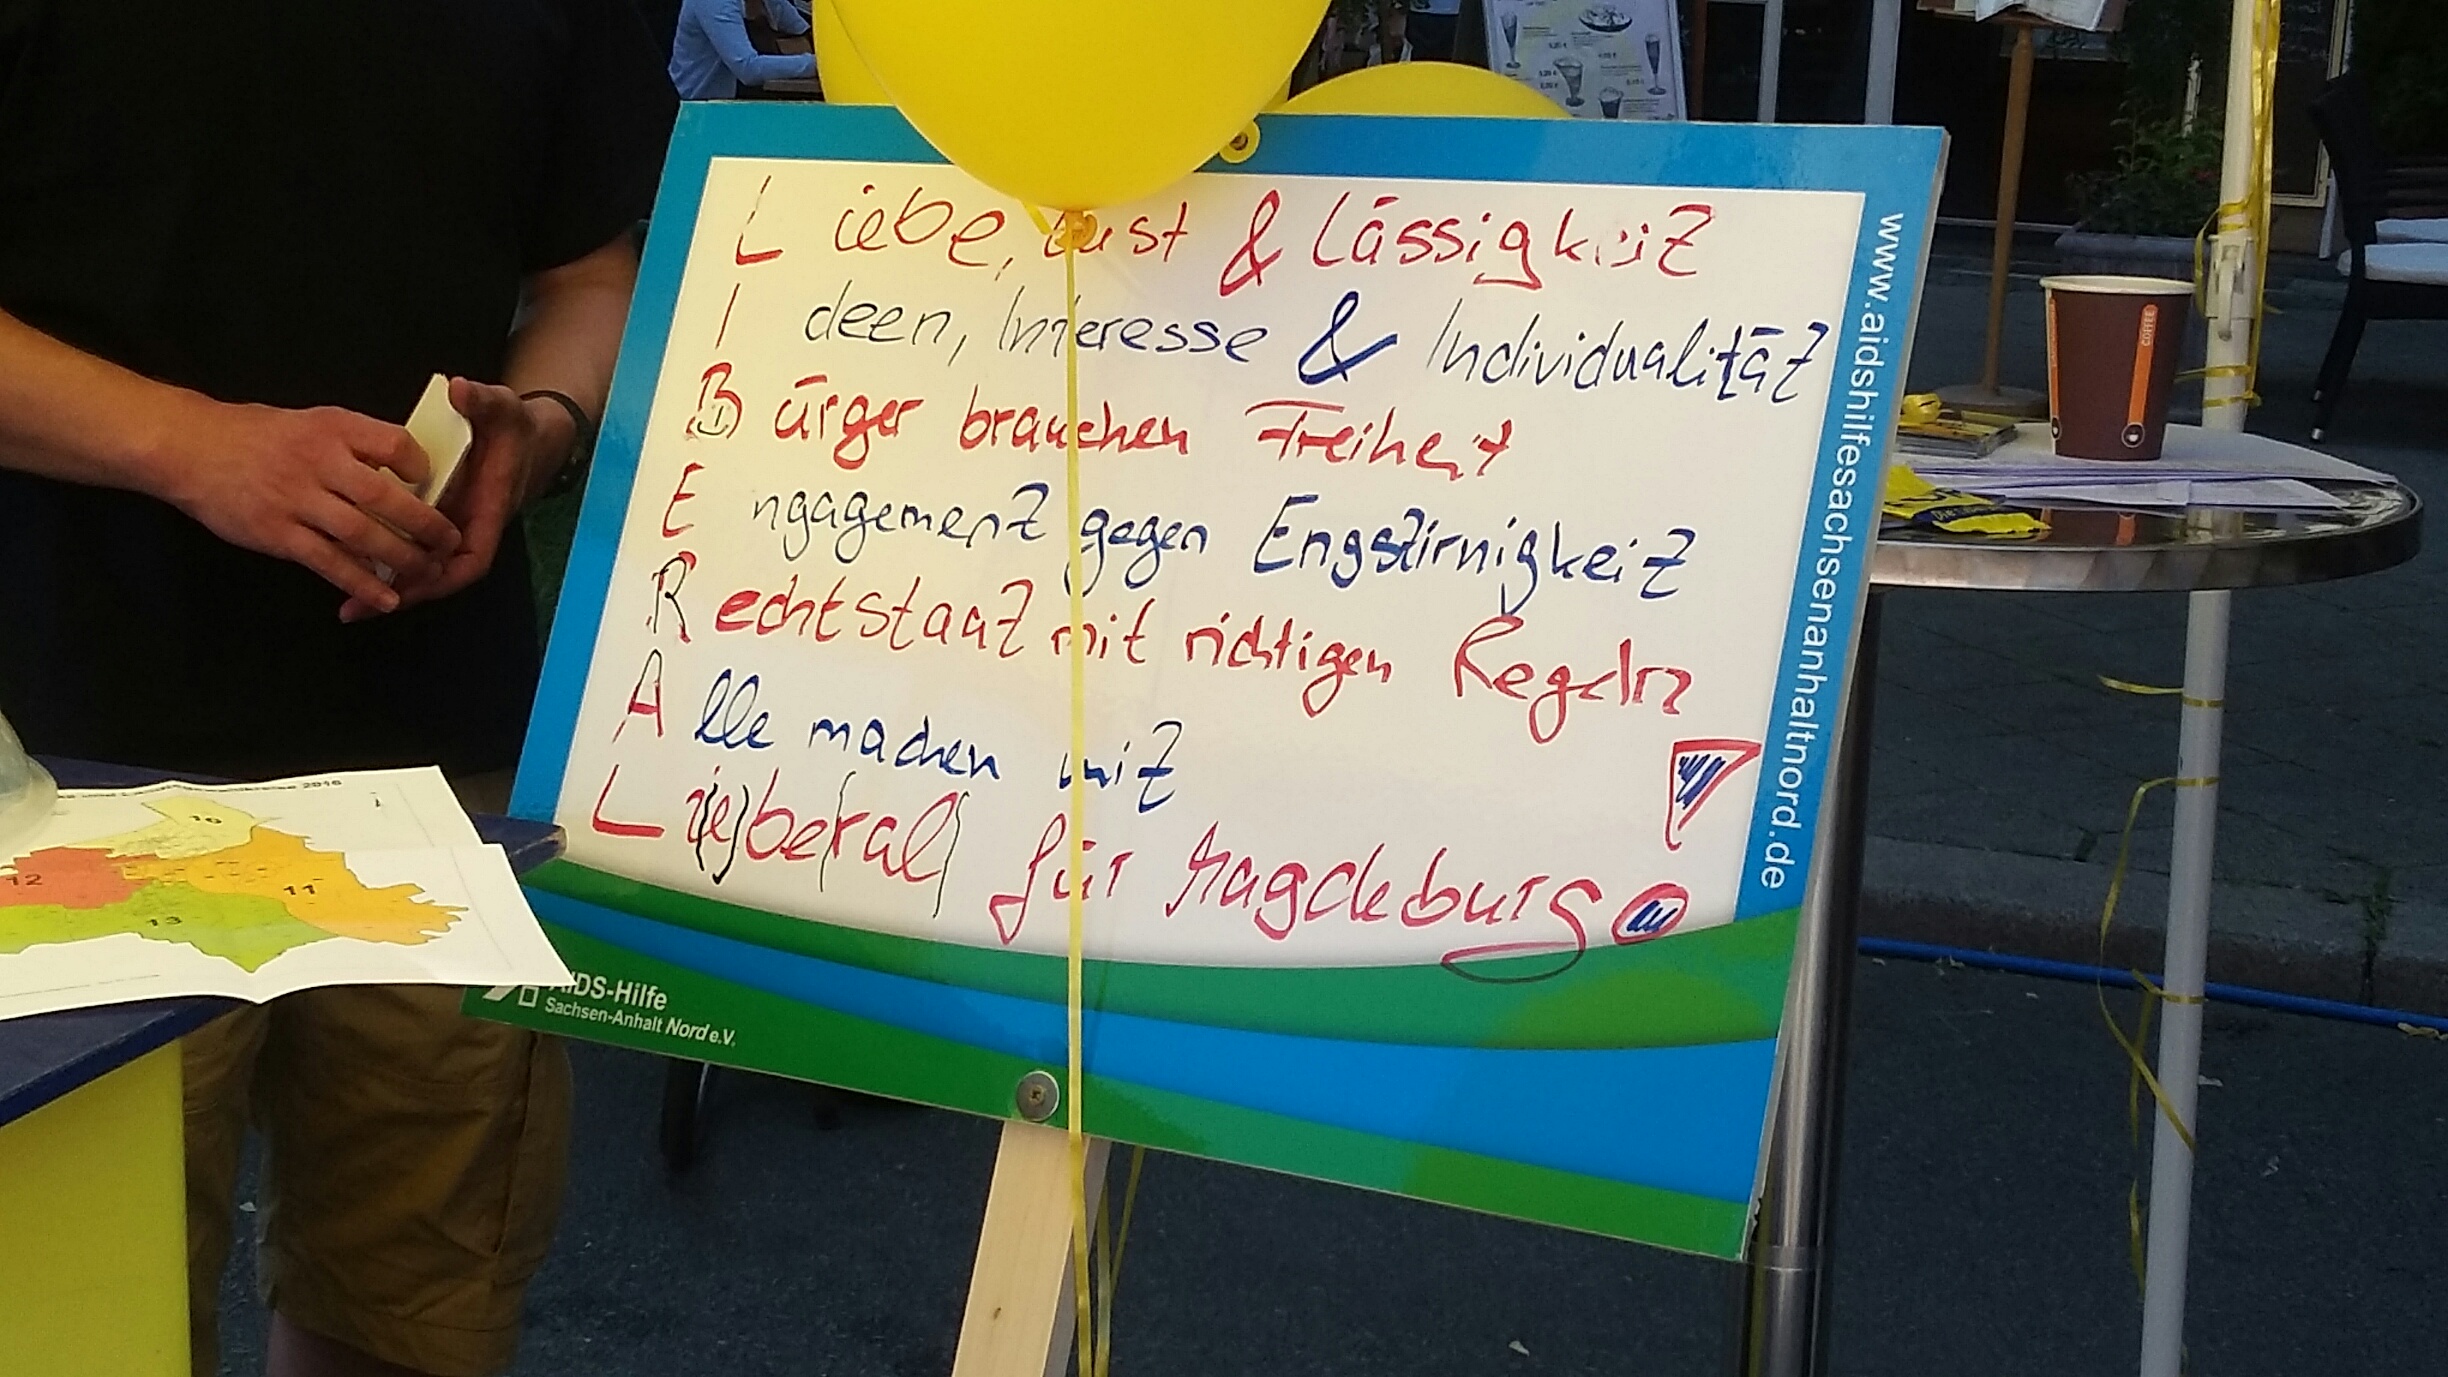 Liebe, Lust & Lässigkeit
Ideen, Interesse & Individualität
Bürger brauchen Freiheit
Engagement gegen Engstirnigkeit
Rechtstaat mit richtigen Regeln
Alle machen mit
Li(e)be(ral) für Magdeburg!
www.aidshilfesachsenanhaltnord.de
AIDS-Hilfe
Sachsen-Anhalt Nord e.V.
2016
16
12
11
13
COFFEE